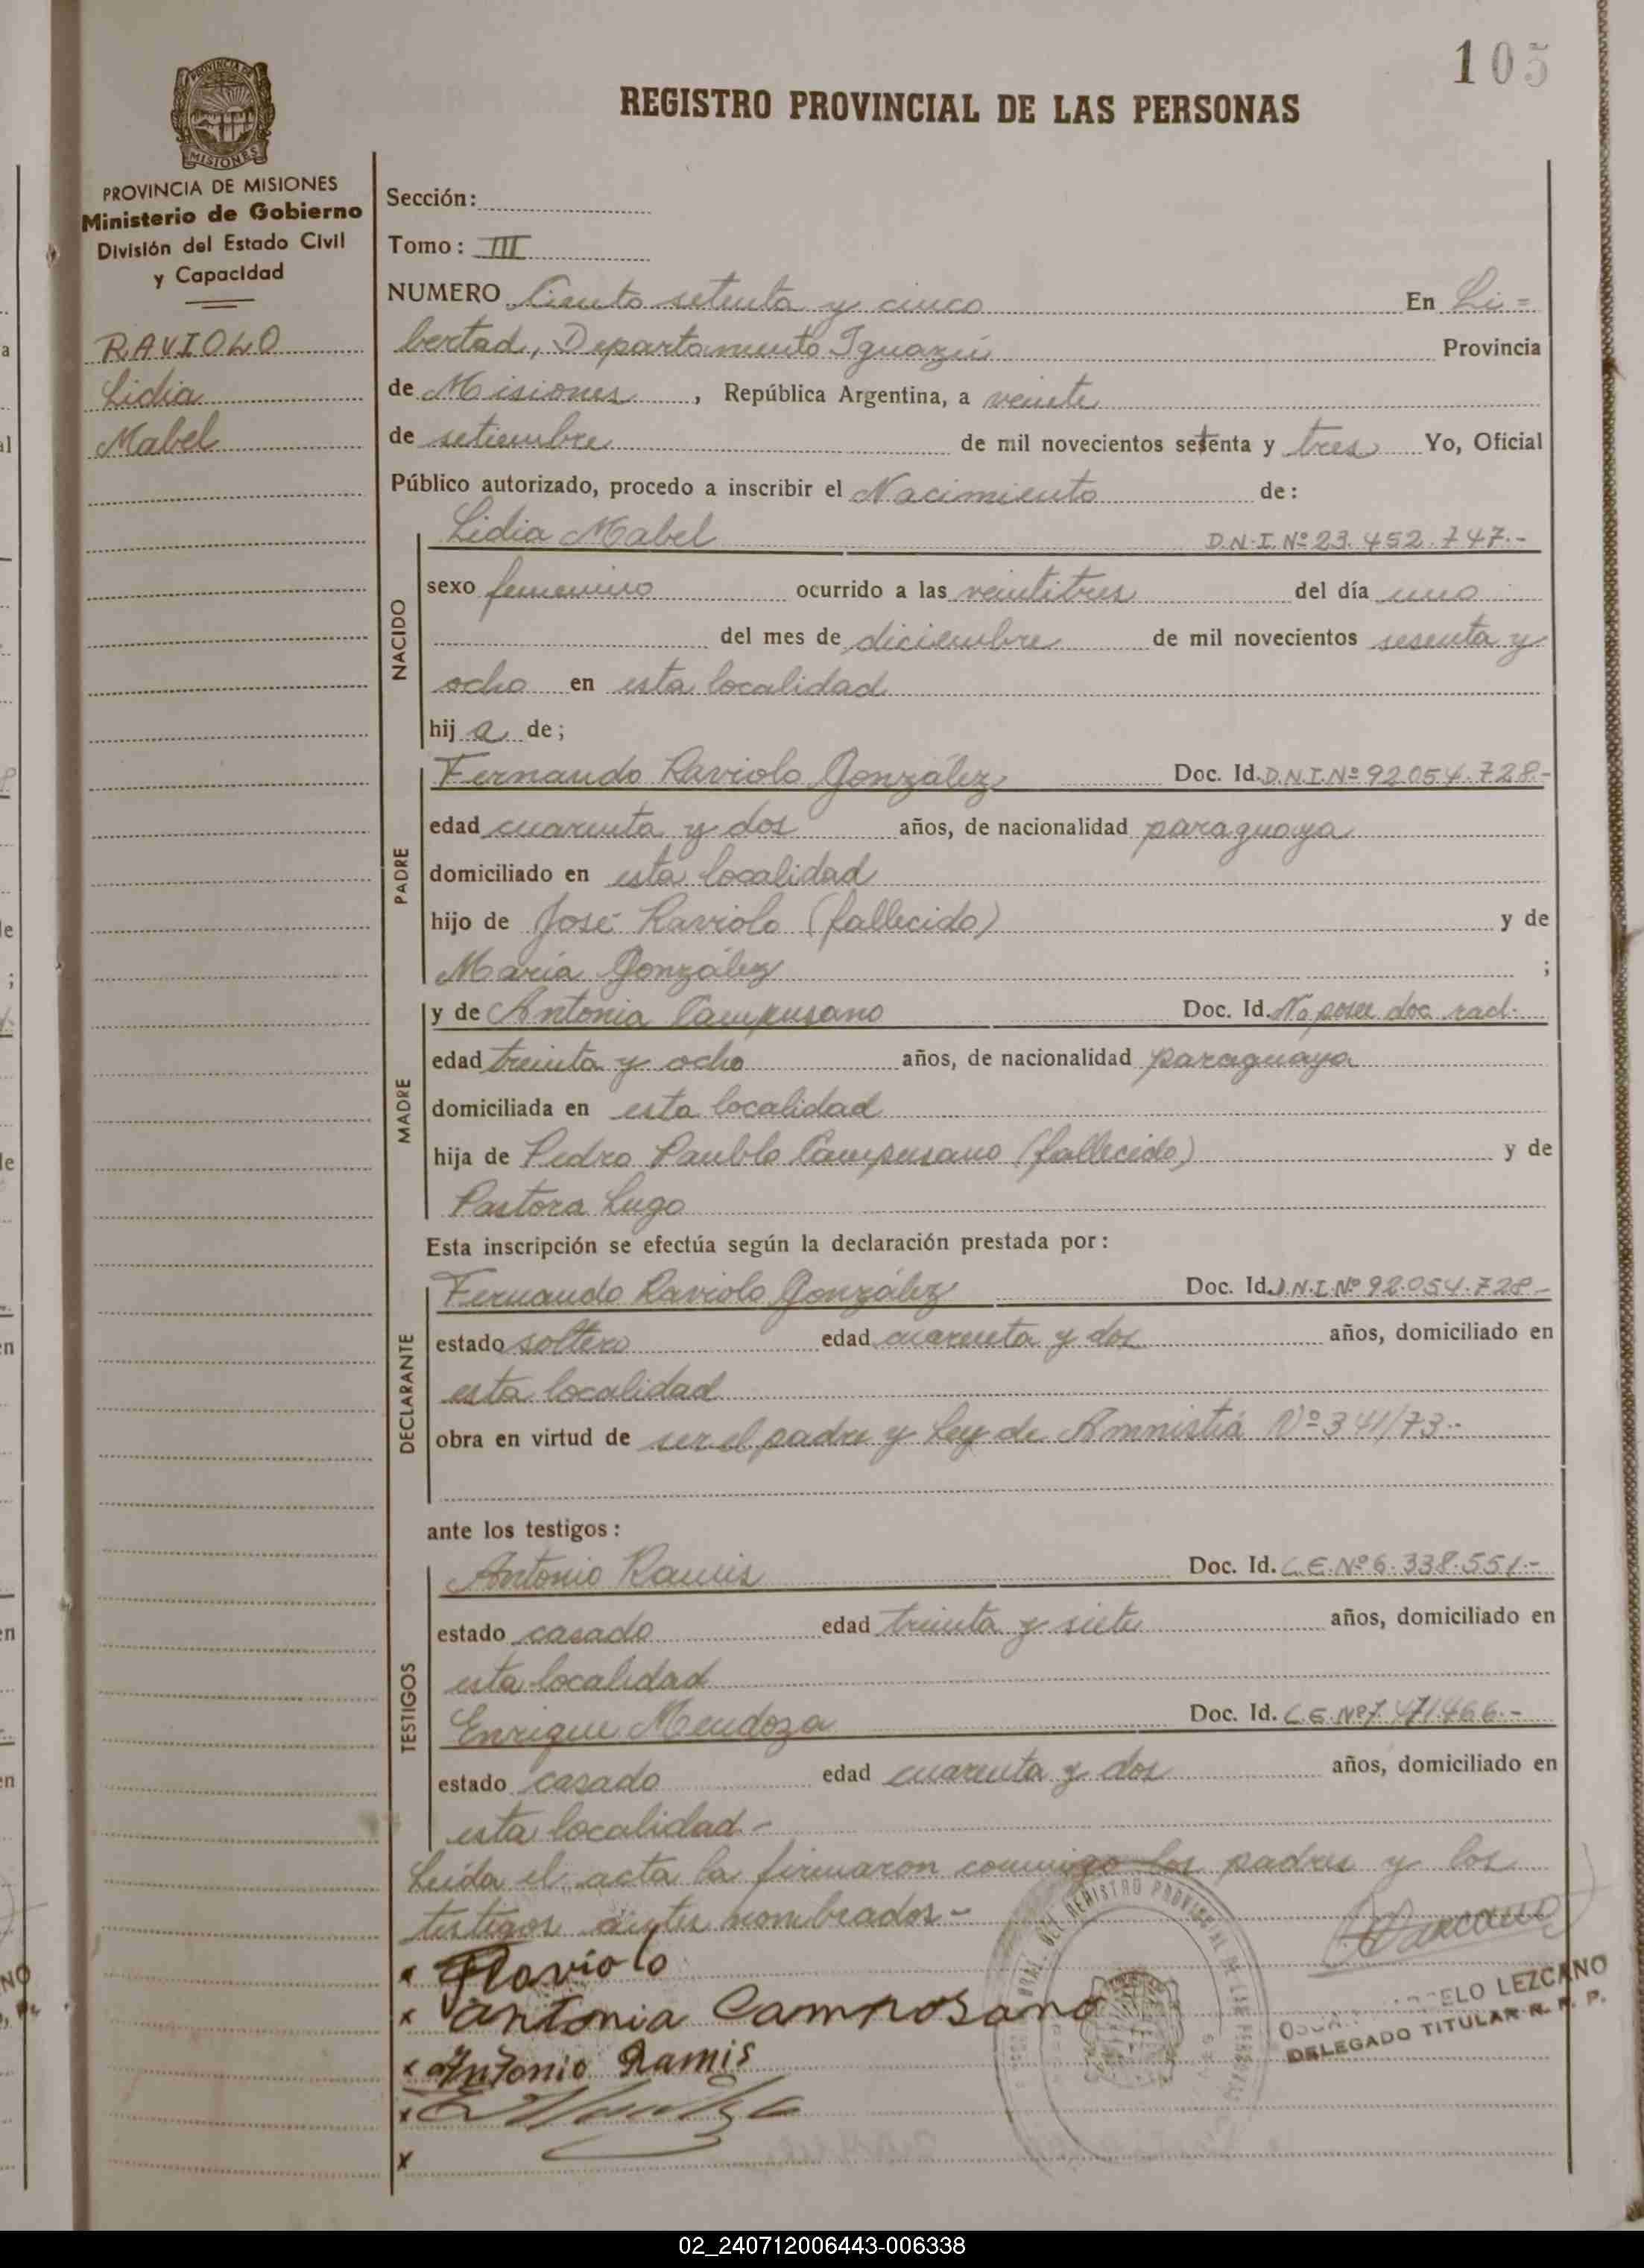 105
REGISTRO PROVINCIAL DE LAS PERSONAS
PROVINCIA DE MISIONES
MISIONES
PROVINCIA DE MISIONES
Ministerio de Gobierno
División del Estado Civil
y Capacidad
RAVIOLO
Lidia
Mabel
Sección:
Tomo: III
NUMERO Ciento setenta y cinco En Li=
bertad, Departamento Iguazú Provincia
de Misiones, República Argentina, a veinte
de setiembre de mil novecientos setenta y tres Yo, Oficial
Público autorizado, procedo a inscribir el Nacimiento de:
NACIDO
Lidia Mabel D.N.I. Nº 23.452.747.-
sexo femenino ocurrido a las veintitres del día uno
del mes de diciembre de mil novecientos sesenta y
ocho en esta localidad
hij a de;
PADRE
Fernando Raviolo González Doc. Id. D.N.I. Nº 92.054.728.-
edad cuarenta y dos años, de nacionalidad paraguaya
domiciliado en esta localidad
hijo de José Raviolo (fallecido) y de
María González ;
MADRE
y de Antonia Campusano Doc. Id. No posee doc. rad.
edad treinta y ocho años, de nacionalidad paraguaya
domiciliada en esta localidad
hija de Pedro Paublo Campusano (fallecido) y de
Pastora Lugo
Esta inscripción se efectúa según la declaración prestada por:
DECLARANTE
Fernando Raviolo González Doc. Id. D.N.I. Nº 92.054.728-
estado soltero edad cuarenta y dos años, domiciliado en
esta localidad
obra en virtud de ser el padre y Ley de Amnistiá Nº 341/73.-
ante los testigos:
TESTIGOS
Antonio Ramis Doc. Id. C.E. Nº 6.338.551.-
estado casado edad treinta y siete años, domiciliado en
esta localidad
Enrique Mendoza Doc. Id. C.E. Nº 7.471.466.-
estado casado edad cuarenta y dos años, domiciliado en
esta localidad-
Leída el acta la firmaron conmigo los padres y los
testigos antes nombrados-
x Raviolo
x antonia Camposano
x Antonio Ramis
x
x
REGISTRO PROVINCIAL DE LAS PERSONAS
ELO LEZCANO
DELEGADO TITULAR R. P. P.
02_240712006443-006338